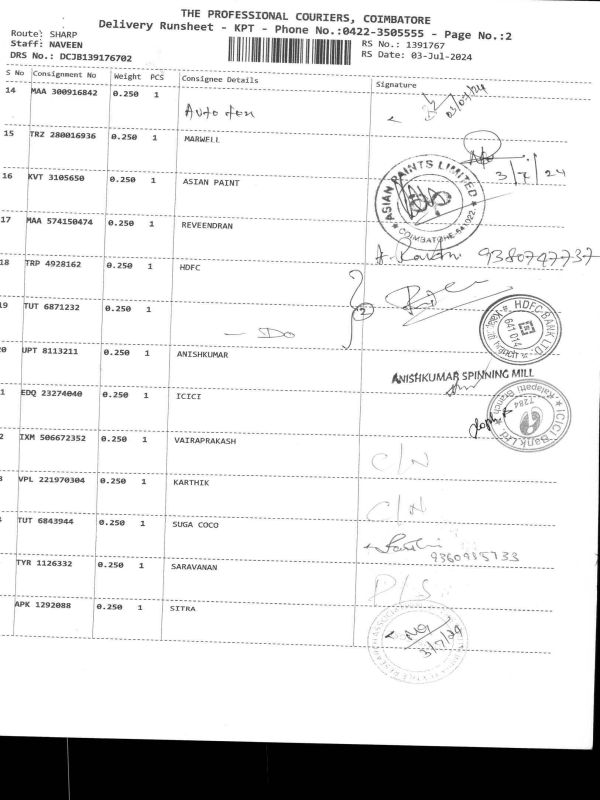 THE PROFESSIONAL COURIERS, COIMBATORE
Delivery Runsheet - KPT - Phone No.:0422-3505555 - Page No.:2
Route: SHARP
Staff: NAVEEN RS No.: 1391767
DRS No.: DCJB139176702 RS Date: 03-Jul-2024
S No Consignment No Weight PCS Consignee Details Signature
14 MAA 300916842 0.250 1
03/07/24
15 TRZ 280016936 0.250 1 MARWELL
3/7/24
16 KVT 3105650 0.250 1 ASIAN PAINT
ASIAN PAINTS LIMITED
COIMBATORE-641022
17 MAA 574150474 0.250 1 REVEENDRAN
9380747737
18 TRP 4928162 0.250 1 HDFC
2
19 TUT 6871232 0.250 1
- Do
HDFC BANK LTD.
641 014
20 UPT 8113211 0.250 1 ANISHKUMAR
ANISHKUMAR SPINNING MILL
1 EDQ 23274040 0.250 1 ICICI
ICICI Bank Ltd
Kalapatti Branch
7284
2 IXM 506672352 0.250 1 VAIRAPRAKASH
C/N
3 VPL 221970304 0.250 1 KARTHIK
C/N
4 TUT 6843944 0.250 1 SUGA COCO
TYR 1126332 0.250 1 SARAVANAN
D/S
APK 1292088 0.250 1 SITRA
3/7/24